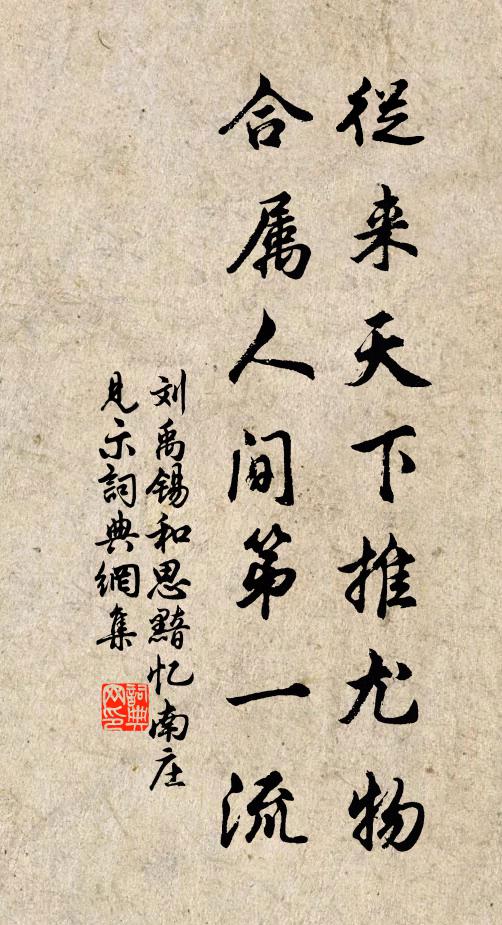 從来天下推尤物
合属人间第一流
刘禹锡和思黯忆南庄
见示詞典網集
詞典
网印